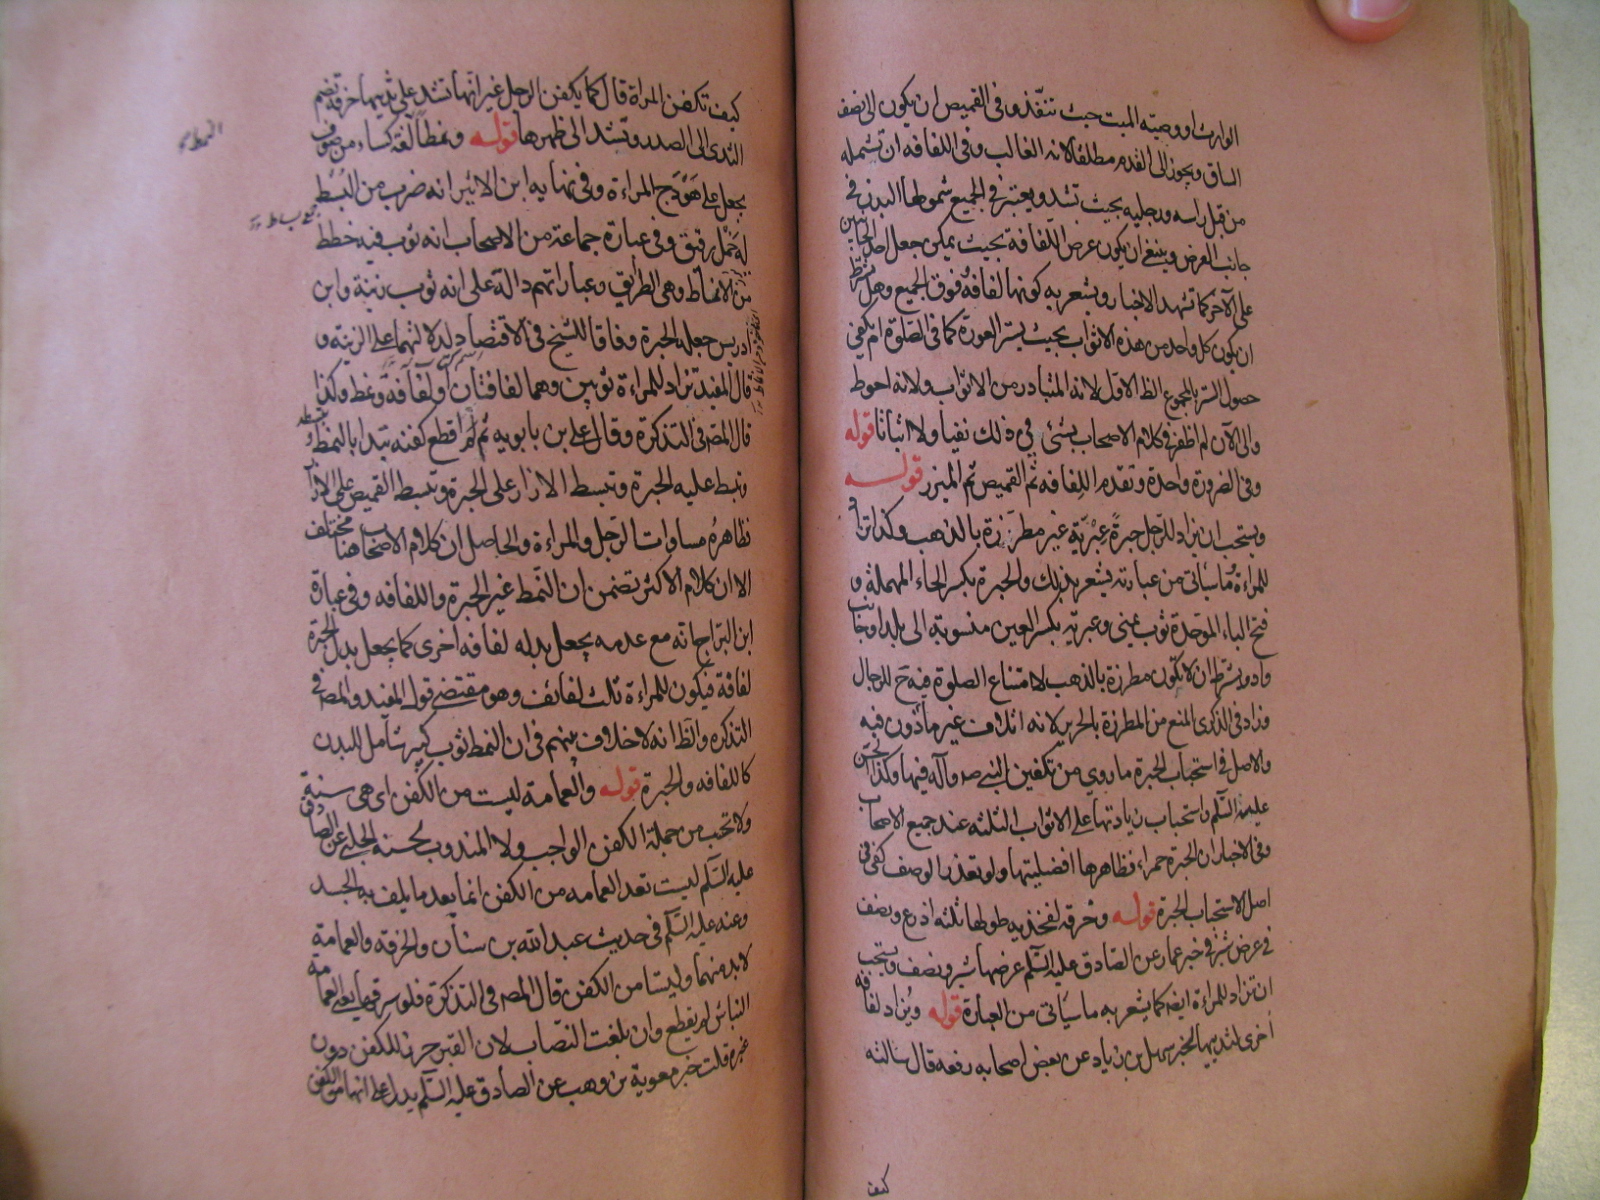 الوارث او وصيته الميت حيث تنفذ و في القميص ان يكون الى نصف
الساق ويجوز الى القدم مطلقا لانه الغالب وفي اللفافه ان تشمله
من قبل راسه ورجليه بحيث تشد ويعتبر في الجميع شمولها البدن في
جانب العرض وينبغي ان يكون عرض اللفافة بحيث يمكن جعل احد الجانبين
على الآخر كما تشهد الاخبار ويشعر به كونها لفافة فوق الجميع وهل يشترط
ان يكون كل واحد من هذه الاثواب بحيث يستر العورة كما في الصلوة ام يكفي
حصول الستر بالمجموع الظ الاول لانه المتبادر من الاثواب ولانه احوط
والى الآن لم اظفر في كلام الاصحاب بشئ في ذلك نفيا ولا اثباتا قوله
وفي الضرورة واحدة وتقدم اللفافه ثم القميص ثم الميزر قوله
ويستحب ان يزاد للرجل حبرة عبرية غير مطرزة بالذهب وكذا تزاد
للمراءة وما سيأتي من عبارته يشعر بذلك والحبرة بكسر الحاء المهملة و
فتح الباء الموحدة ثوب يمني وعبرية بكسر العين منسوبة الى بلد او جانب
واد ويشترط ان لا تكون مطرزة بالذهب لامتناع الصلوة فيه ح للرجال
وزاد في الذكرى المنع من المطرزة بالحرير لانه اتلاف غير ماذون فيه
والاصل في استحباب الحبرة ما روي من تكفين النبي صه وآله فيها وكذا الحسن
عليه السلم واستحباب زيادتها على الاثواب الثلثه عند جميع الاصحاب
وفي الاخبار ان الحبرة حمراء فظاهرها افضليتها ولو تعذر الوصف كفى في
اصل الاستحباب الحبرة قوله وخرقه لفخذيه طولها ثلثه اذرع ونصف
في عرض شبر في خبر عمار عن الصادق عليه السلم عرضها شبر ونصف ويستحب
ان تزاد للمراءة ايضا كما يشعر به ما سيأتي من العبارة قوله ويزاد لفافه
اخرى لثدييها لخبر سهل بن زياد عن بعض اصحابه رفعه قال سالته
كيف
كيف تكفن المراة قال كما يكفن الرجل غير انها تشد على ثدييها خرقه تضم
الثدى الى الصدر وتشد الى ظهرها قوله ونمطا لغة كساء من صوف
يجعل على هودج المراءة وفي نهايه ابن الاثير انه ضرب من البسط
جمع بساط
له خمل رقيق وفي عبارة جماعة من الاصحاب انه ثوب فيه خطط
من الانماط وهي الطرايق وعباراتهم دالة على انه ثوب زينة وابن
ادريس جعله الحبرة وفاقا للشيخ في الاقتصاد لدلالتهما على الزينه و
قال المفيد تزاد للمراءة ثوبين وهما لفافتان او لفافة ونمط وكذا
قال المصه في التذكرة وقال علي بن بابويه ثم اقطع كفنه تبدا بالنمط وتبسطه
وتبسط عليه الحبرة وتبسط الازار على الحبرة وتبسط القميص على الازار
فظاهره مساوات الرجل والمراءة والحاصل ان كلام الاصحاب هنا مختلف
الا ان كلام الاكثر تضمن ان النمط غير الحبرة واللفافه وفي عبارة
ابن البراج انه مع عدمه يجعل بدله لفافه اخرى كما يجعل بدل الحبرة
لفافة فيكون للمراءة ثلث لفائف وهو مقتضى قول المفيد والمصه في
التذكره والظ انه لا خلاف بينهم في ان النمط ثوب كبير شامل للبدن
كاللفافه والحبرة قوله والعمامة ليست من الكفن اي هي سنة
ولا تحب من جملة الكفن الواجب ولا المندوب لحسنه الحلبي عن الصادق
عليه السلم ليست تعد العمامه من الكفن انما يعد ما يلف به الجسد
وعنه عليه السلم في حديث عبد الله بن سنان والخرقه والعمامة
لابد منهما وليستا من الكفن قال المصه في التذكرة فلو سرق العمامة
النباش لم يقطع وان بلغت النصاب لان القبر حرز للكفن دون
غيره قلت خبر معوية بن وهب عن الصادق عليه السلم يدل على انها من الكفن